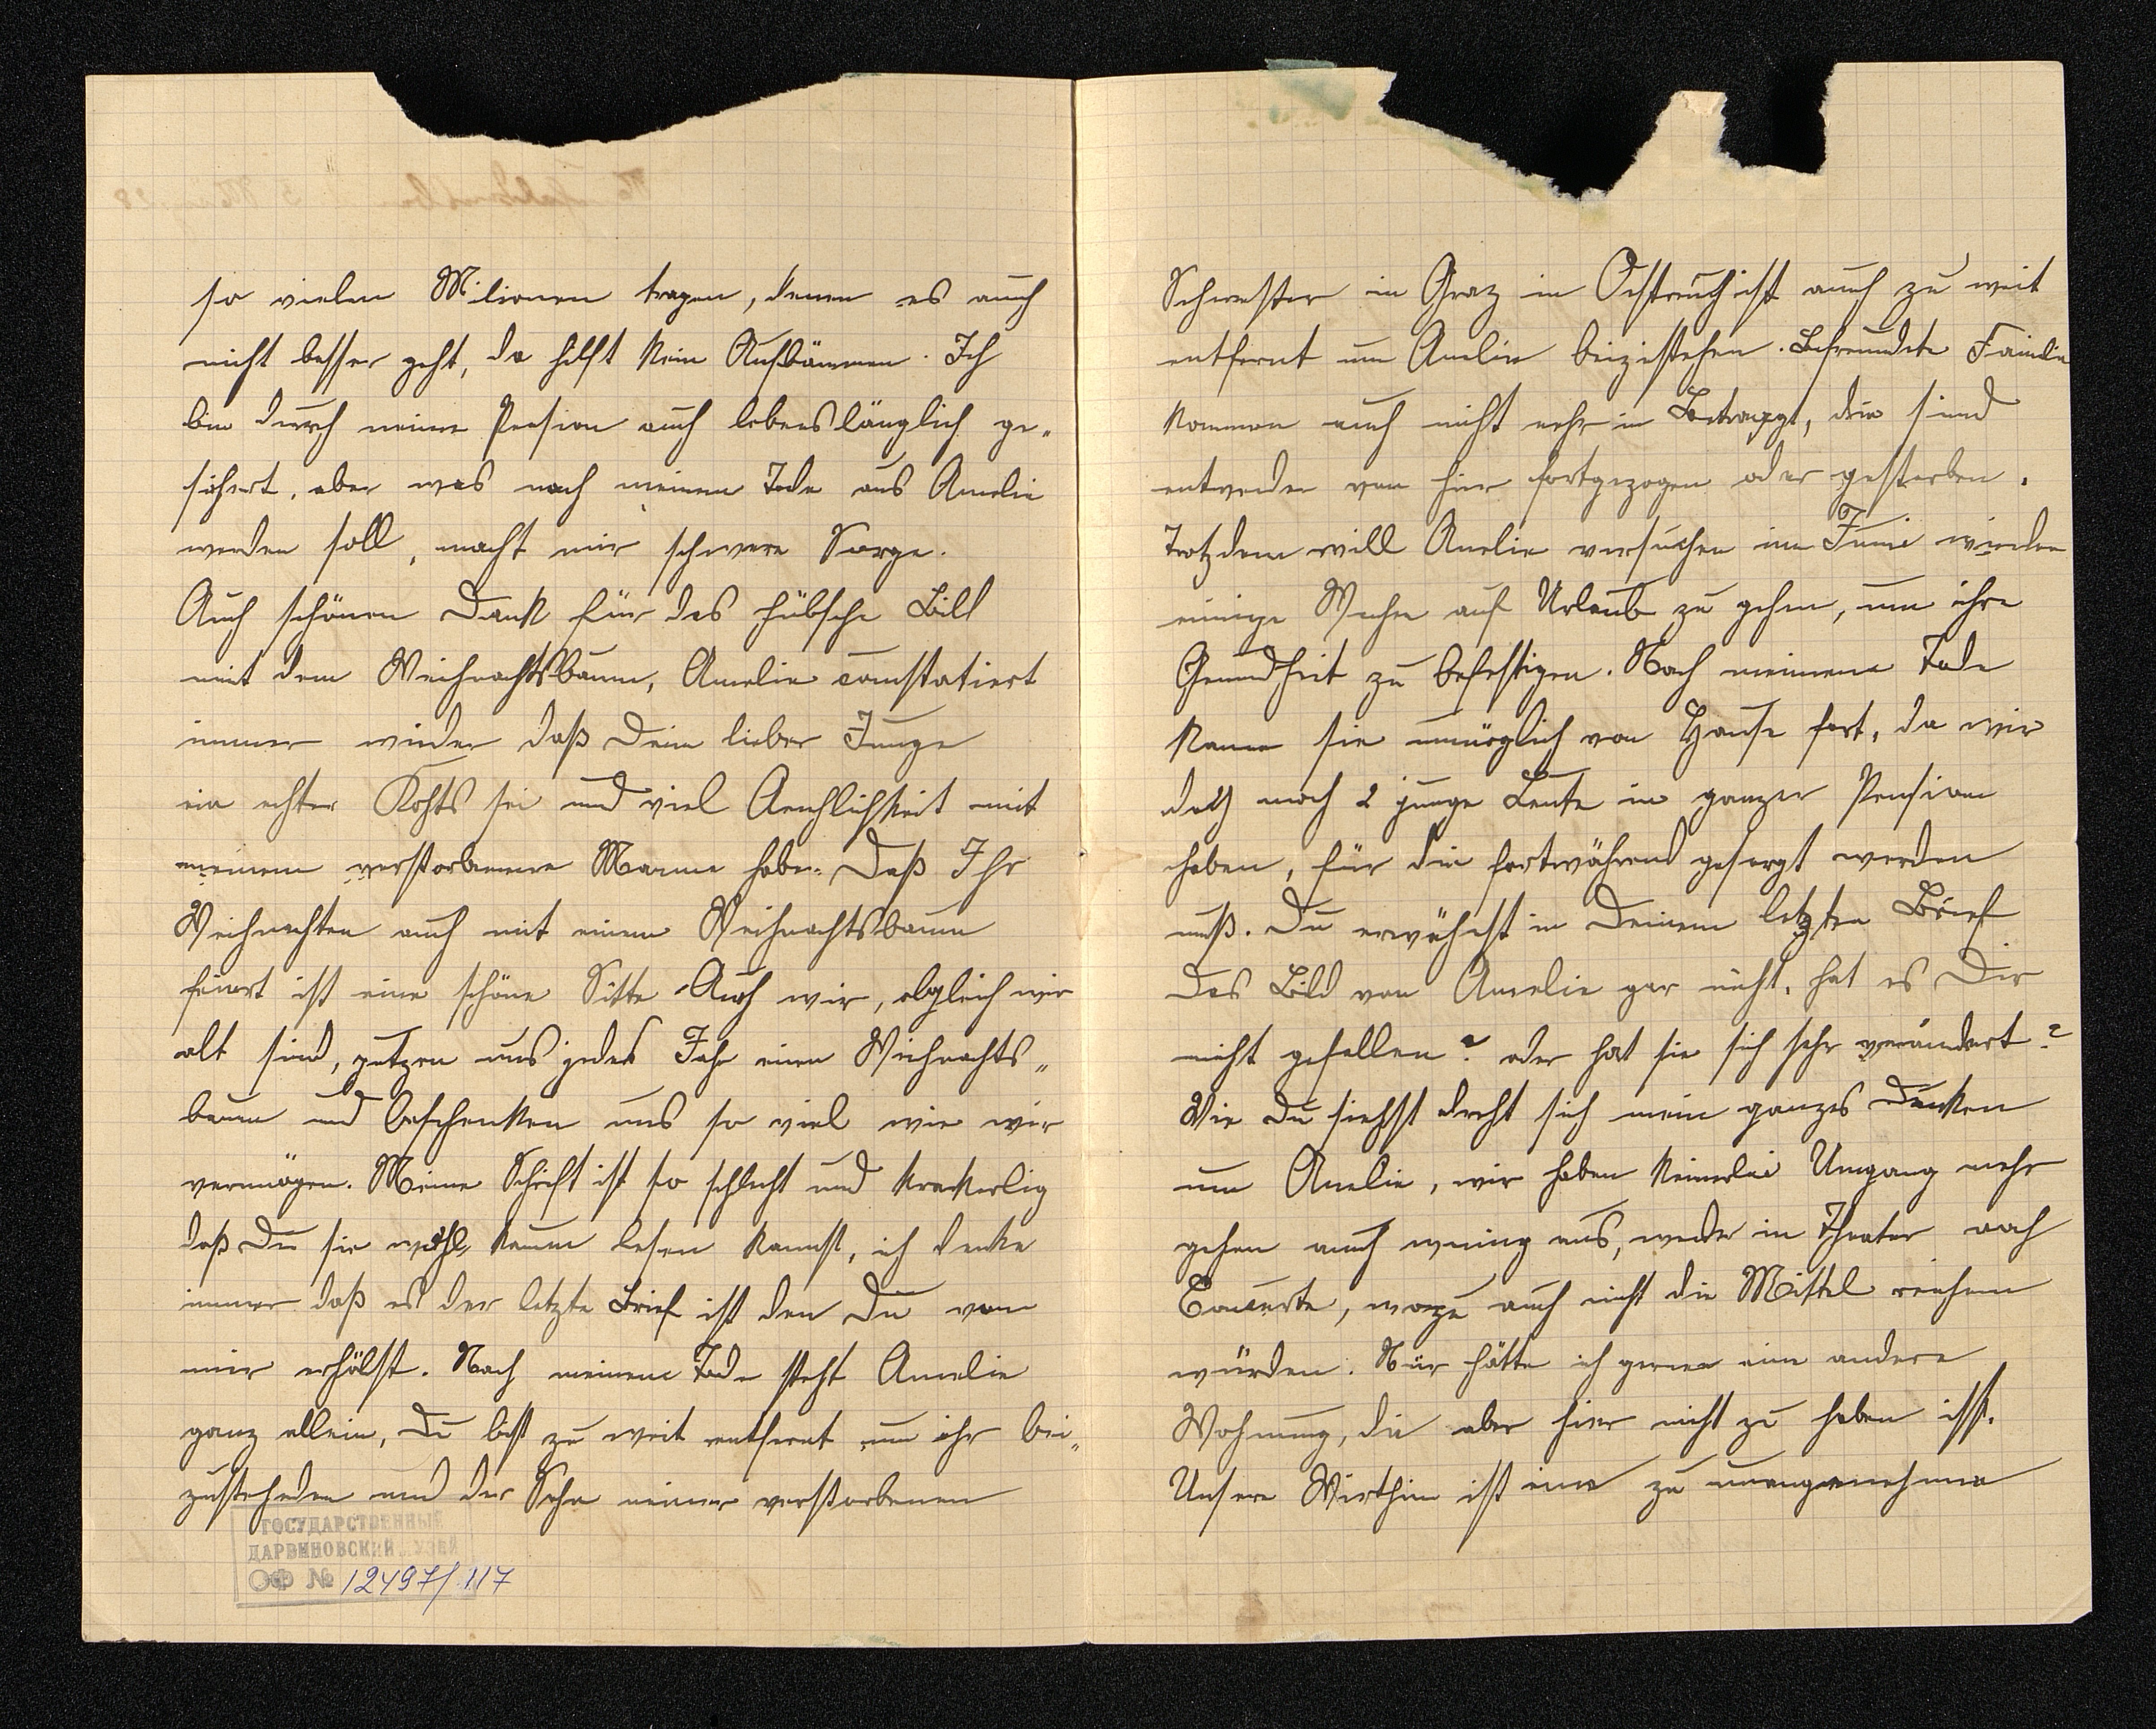 so vielen Milionen tragen, denen es auch
nicht besser geht, da hilft kein Aufbäumen. Ich
bin durch meine Pension auch lebenslänglich ge„
sichert, aber was nach meinem Tode aus Amelie
werden soll, macht mir schwere Sorge.
Auch schönen Dank für das hübsche Bild
mit dem Weihnachtsbaum, Amelie constatiert
immer wieder daß Dein lieber Junge
ein echter Kohts sei und viel Aenhlichkeit mit
meinem verstorbenen Manne habe. Daß Ihr
Weihnachten auch mit einem Weihnachtsbaum
feiert ist eine schöne Sitte Auch wir, obgleich wir
alt sind, putzen uns jedes Jahr einen Weihnachts„
baum und beschenken uns so viel wie wir
vermögen. Meine Schrift ist so schlecht und krakerlig
daß Du sie wohl kaum lesen kannst, ich denke
immer daß es der letzte Brief ist den Du von
mir erhälst. Nach meinem Tode steht Amelie
ganz allein, Du bist zu weit entfernt um ihr bei„
zustehen und der Sohn meiner verstorbenen
ГОСУДАРСТВЕННЫЙ
ДАРВИНОВСКИЙ МУЗЕЙ
ОФ № 12497/117
Schwester in Graz in Oestreich ist auch zu weit
entfernt um Amelie beizustehen. Befreundete Familien
kommen auch nicht mehr in Betracht, die sind
entweder von hier fortgezogen oder gestorben.
Trotzdem will Amelie versuchen im Juni wieder
einige Wochen auf Urlaub zu gehen, um ihre
Gesundheit zu befestigen. Nach meinem Tode
kann sie unmöglich von Hause fort, da wir
doch noch 2 junge Leute in ganzer Pension
haben, für die fortwährend gesorgt werden
muß. Du erwähnst in Deinem letzten Brief
das Bild von Amelie gar nicht, hat es Dir
nicht gefallen? oder hat sie sich sehr verändert?
Wie Du siehst dreht sich mein ganzes Denken
um Amelie, wir haben keinerlei Umgang mehr
gehen auch wenig aus, weder in Theater noch
Concerte, wozu auch nicht die Mittel reichen
würden. Nur hätte ich gerne eine andere
Wohnung, die aber hier nicht zu haben ist.
Unsere Wirthin ist eine zu unangenehme